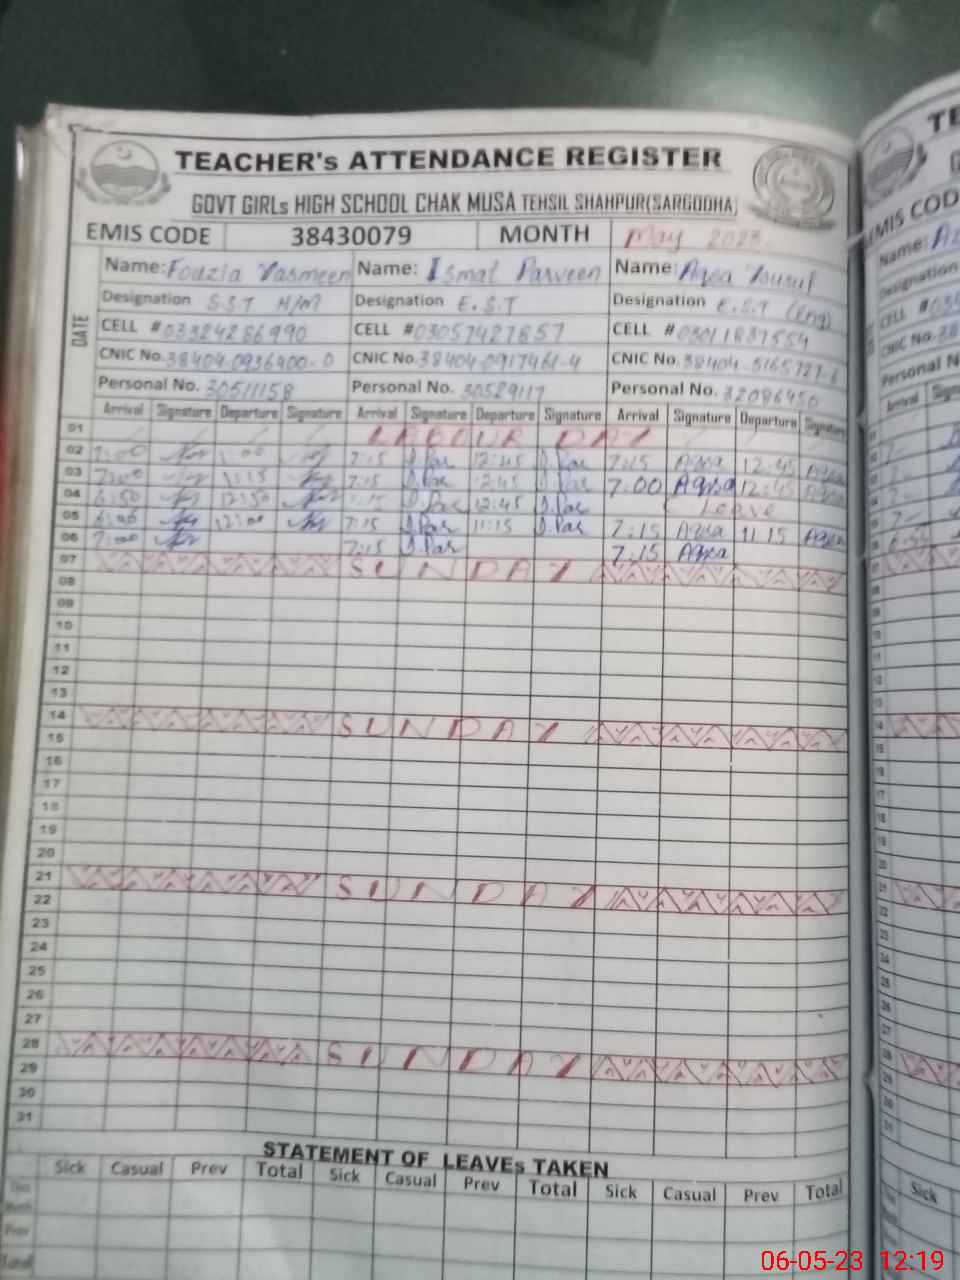 TEACHER's ATTENDANCE REGISTER
GOVT GIRLs HIGH SCHOOL CHAK MUSA TEHSIL SHAHPUR(SARGODHA)
EMIS CODE 38430079 MONTH May 2023
DATE
Name: Fouzia Yasmeen Name: Ismat Parveen Name: Aqsa Yousuf
Designation S.S.T H/M Designation E.S.T Designation E.S.T (Eng)
CELL # 03324286990 CELL # 03057427857 CELL # 03011837554
CNIC No. 38404-0936900-0 CNIC No. 38404-0917461-4 CNIC No. 38404-5165727-6
Personal No. 30511158 Personal No. 30529117 Personal No. 32096450
Arrival Signature Departure Signature Arrival Signature Departure Signature Arrival Signature Departure Signature
01 LABOUR DAY
02 7:00 1:00 7:15 I.Par 12:45 I.Par 7:15 Aqsa 12:45 Aqsa
03 7:00 1:15 7:15 I.Par 12:45 I.Par 7:00 Aqsa 12:45 Aqsa
04 6:50 12:50 I.Par 12:45 I.Par Leave
05 12:00 7:15 I.Par 11:15 I.Par 7:15 Aqsa 11:15 Aqsa
06 7:00 7:15 I.Par 7:15 Aqsa
07 SUNDAY
08
09
10
11
12
13
14 SUNDAY
15
16
17
18
19
20
21 SUNDAY
22
23
24
25
26
27
28 SUNDAY
29
30
31
STATEMENT OF LEAVEs TAKEN
Sick Casual Prev Total Sick Casual Prev Total Sick Casual Prev Total
This Month
Prev
Total
TE
EMIS COD
Name: Az
Designation
CELL # 03
CNIC No. 38
Personal N
Arrival
Sick
06-05-23 12:19